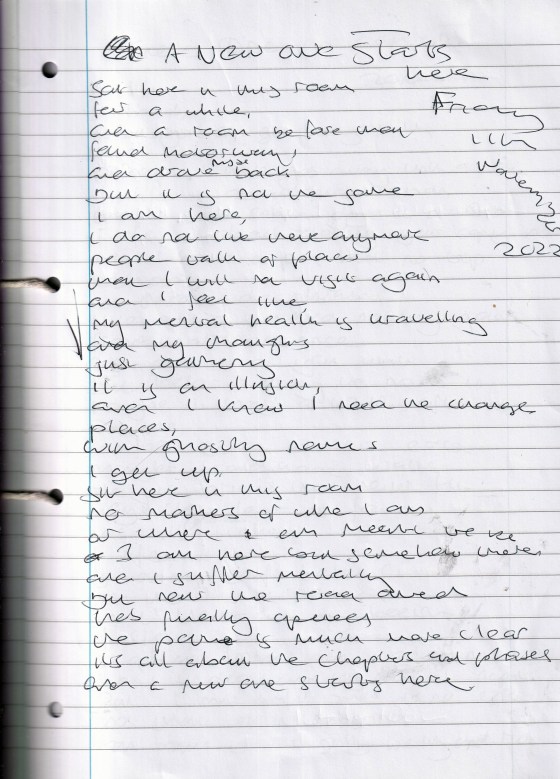 A New one Starts
here
Friday
11th
November
2022
Sat here in this room
for a while,
and a room before that
found motorway,
and drove back
but it is not the same
I am here,
I do not live here anymore
people talk of places
that I will not visit again
and I feel like
my mental health is unravelling
and my thoughts
just gathering
it is an illusion,
and I know I need the change
places,
with ghostly names
I get up,
sit here in this room
no matters of who I am
or where I am meant to be
I am here and somehow there
and I suffer mentally
but now the road ahead
has finally opened
the path is much more clear
its all about the chapters and phases
and a new one starts here.